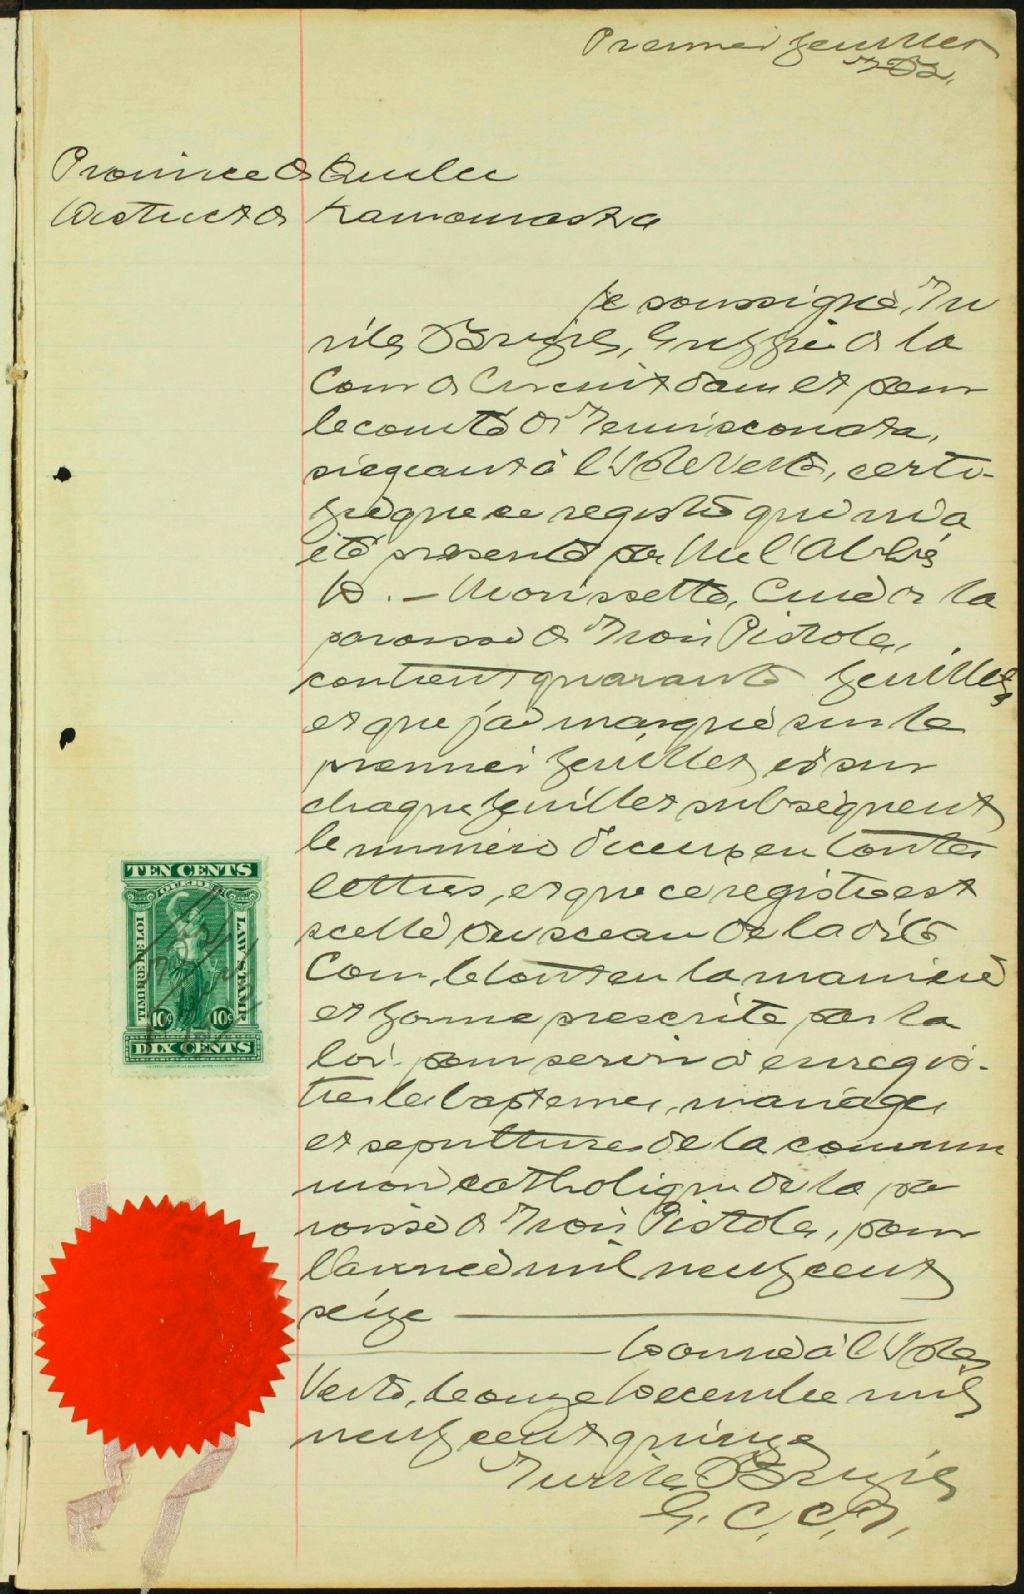 Premier feuillet
T.B.
Province de Quebec
District de Kamouraska
Je soussigné, Tu
rile Bruyie, Greffier de la
Cour de Circuit dans et pour
le comté de Temisconata,
siégeant à l'Isle Verte, certi-
fie que ce registre qui m'a
été presenté par Mr l'Abbé
D. - Morissette, Curé de la
paroisse de Trois Pistoles,
contient quarante feuillets,
et que j'ai marqué sur le
premier feuillet et sur
chaque feuillet subséquent
le numéro d'iceux en toutes
lettres, et que ce registre est
scellé du sceau de la dite
Cour, le tout en la manière
et forme prescrite par la
loi pour servir à enregis-
trer les baptemes, mariages
et sepultures de la commu
nion catholique de la pa
roisse de Trois Pistoles, pour
l'année mil neuf cent
seize
Donné à l'Isle
Verte, le onze Decembre mil
neuf cent quinze
TEN CENTS
QUEBEC
TIMBRE DE LOI
LAW STAMP
10c 10c
DIX CENTS
G. C. C. T.